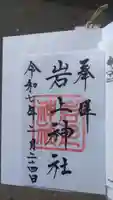 奉拝
岩上神社
令和七年二月二十四日